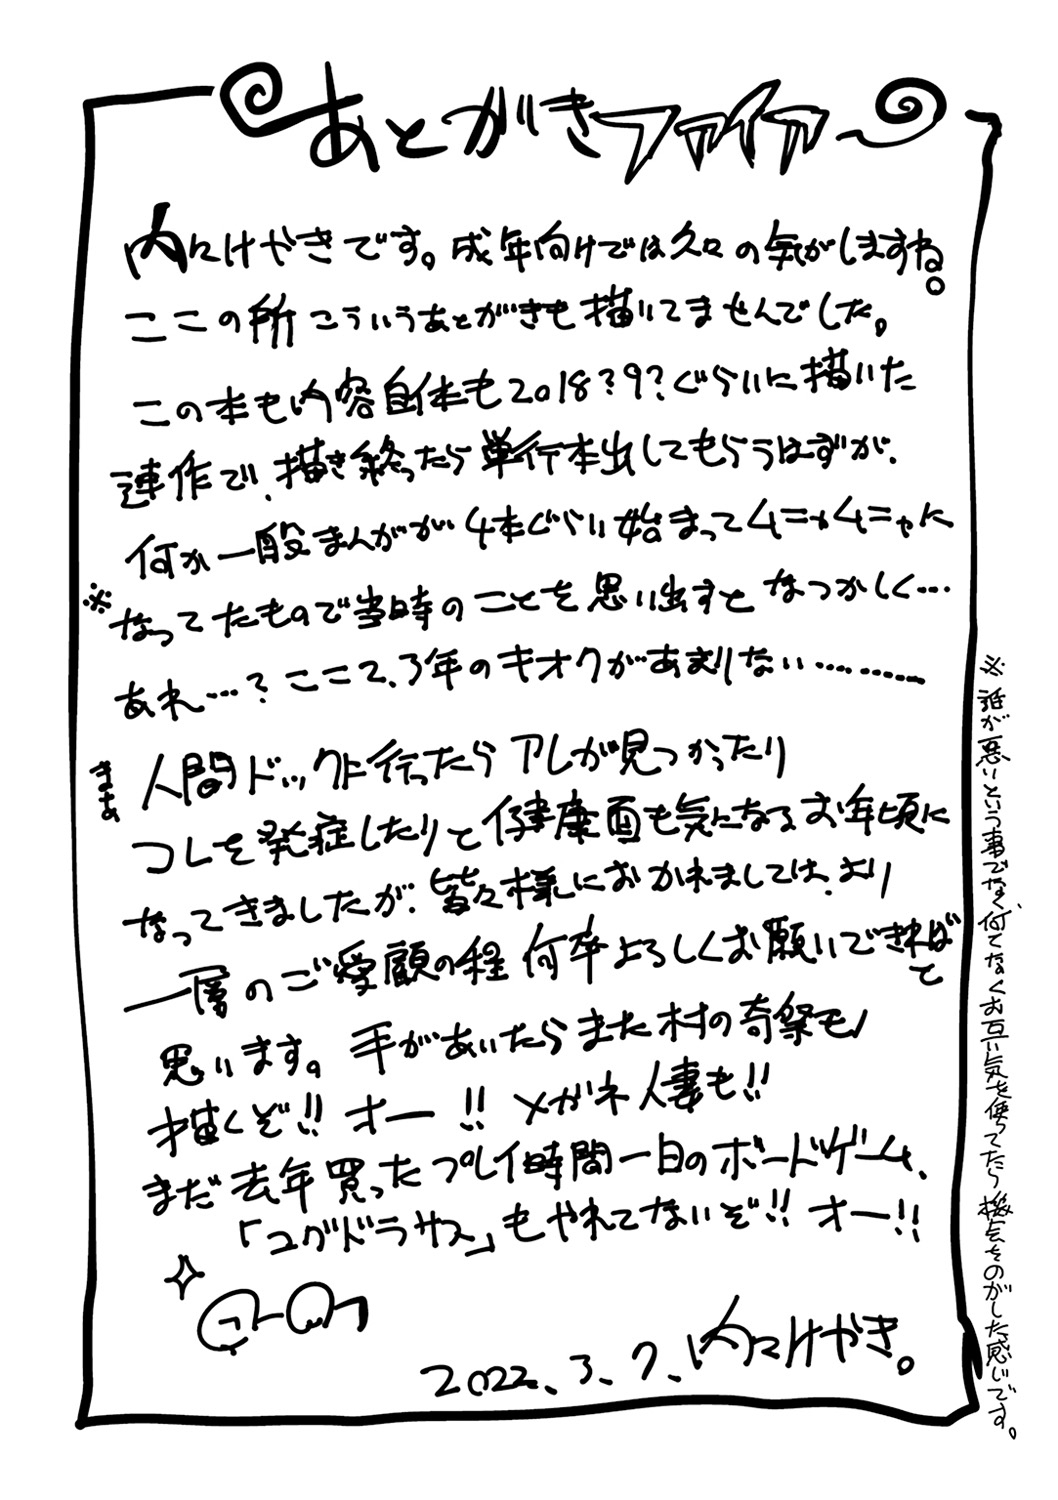 あとがきファイア
内々けやきです。成年向けでは久々の気がしますね。
ここの所こういうあとがきも描いてませんでした。
この本も内容自体も2018?9?ぐらいに描いた
連作で、描き終ったら単行本出してもらうはずが、
何か一般まんがが4本ぐらい始まってムニャムニャに
※なってたもので当時のことを思い出すとなつかしく…
あれ…?ここ2、3年のキオクがあまりない………
まあ人間ドックに行ったらアレが見つかったり
コレを発症したりと健康面も気になるお年頃に
なってきましたが、皆々様におかれましては、より
一層のご愛顧の程何卒よろしくお願いできればと
思います。手があいたらまた村の奇祭モノ
描くぞ!!オー!!メガネ人妻も!!
まだ去年買ったプレイ時間一日のボードゲーム、
「ユグドラサス」もやれてないぞ!!オー!!
2022.3.7.内々けやき。
※誰が悪いという事でなく、何てなくお互い気を使ってたら機会をのがした感じです。